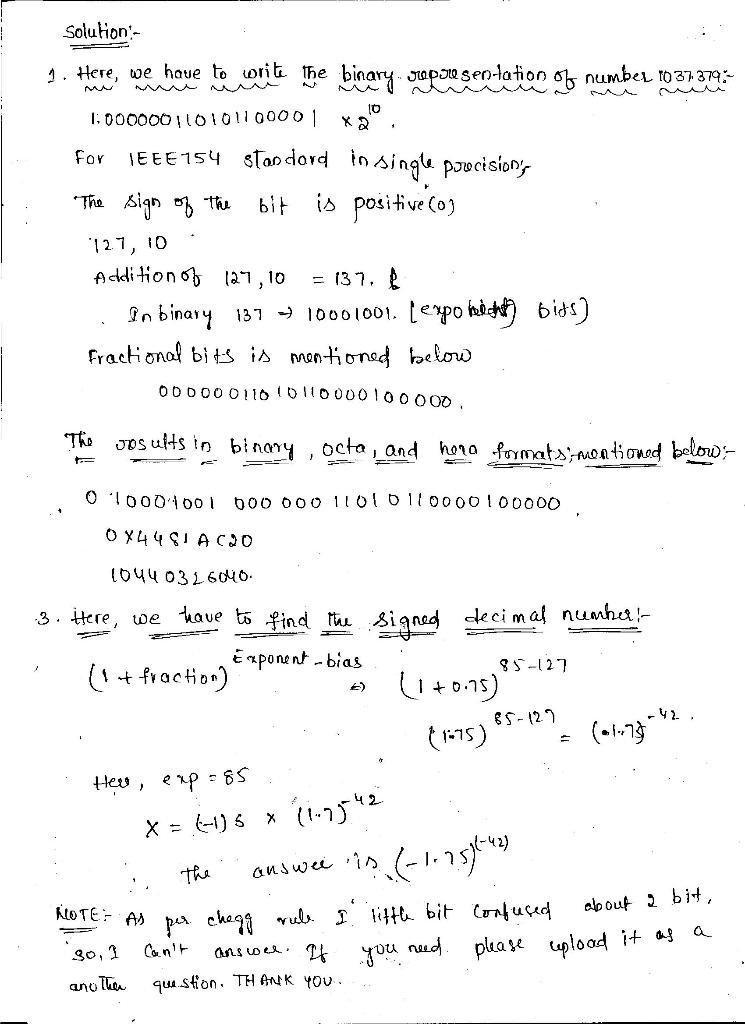 Solution:-
1. Here, we have to write the binary representation of number 1037.379:-
1.00000011010110000 1 x 2^10.
For IEEE754 standard in single precision:-
The sign of the bit is positive (0)
127, 10
Addition of 127, 10 = 137.
In binary 137 → 10001001. [exponent) bits)
Fractional bits is mentioned below
00000011010110000100000,
The results in binary, octa, and hexa formats; mentioned below:-
0 10001001 000 000 1101 0110000100000,
0X4481AC20
10440326040.
3. Here, we have to find the signed decimal number:-
(1 + fraction)^Exponent - bias ⇔ (1 + 0.75)^85-127
(1.75)^85-127 = (-1.75)^-42.
Here, exp = 85
X = (-1)s x (1.75)^-42
∴ the answer is (-1.75)^(-42)
NOTE:- As per chegg rule I little bit confused about 2 bit,
so, I can't answer. If you need please upload it as a
another question. THANK YOU.